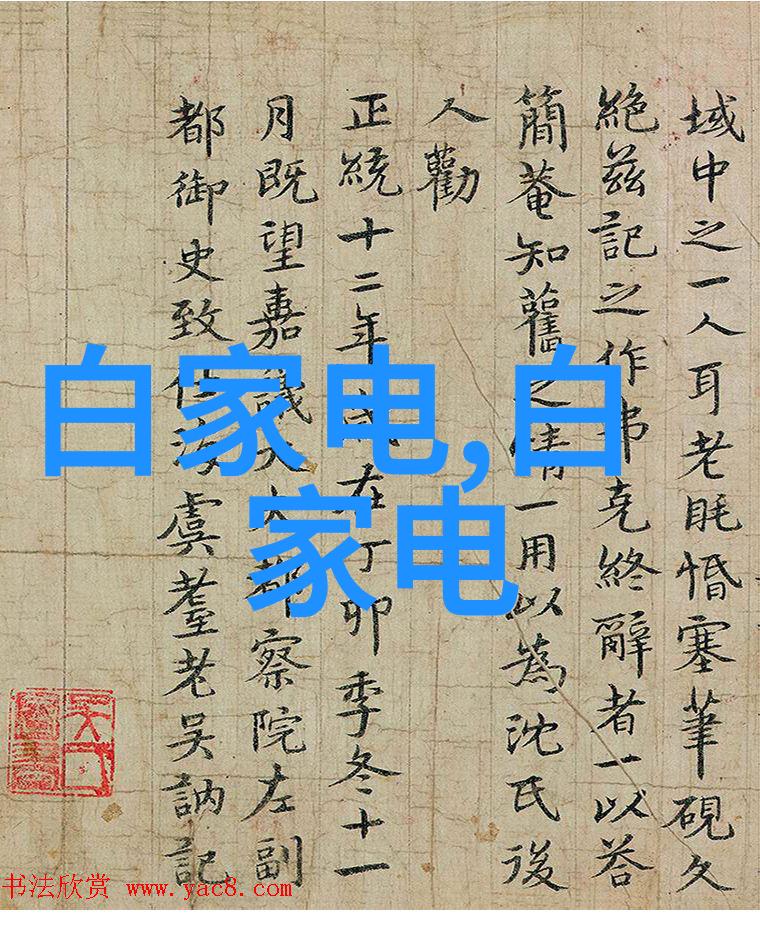 域中之一人耳老眊惛塞筆硯久
絶兹記之作弗克終辭者一以荅
簡菴知舊之情一用以為沈氏後
人勸
正統十二年歲在丁卯季冬十一
月既望嘉議大夫都察院左副
都御史致仕海虞耋老吳訥記
白家电,白
家电
书法欣赏 www.yac8.com